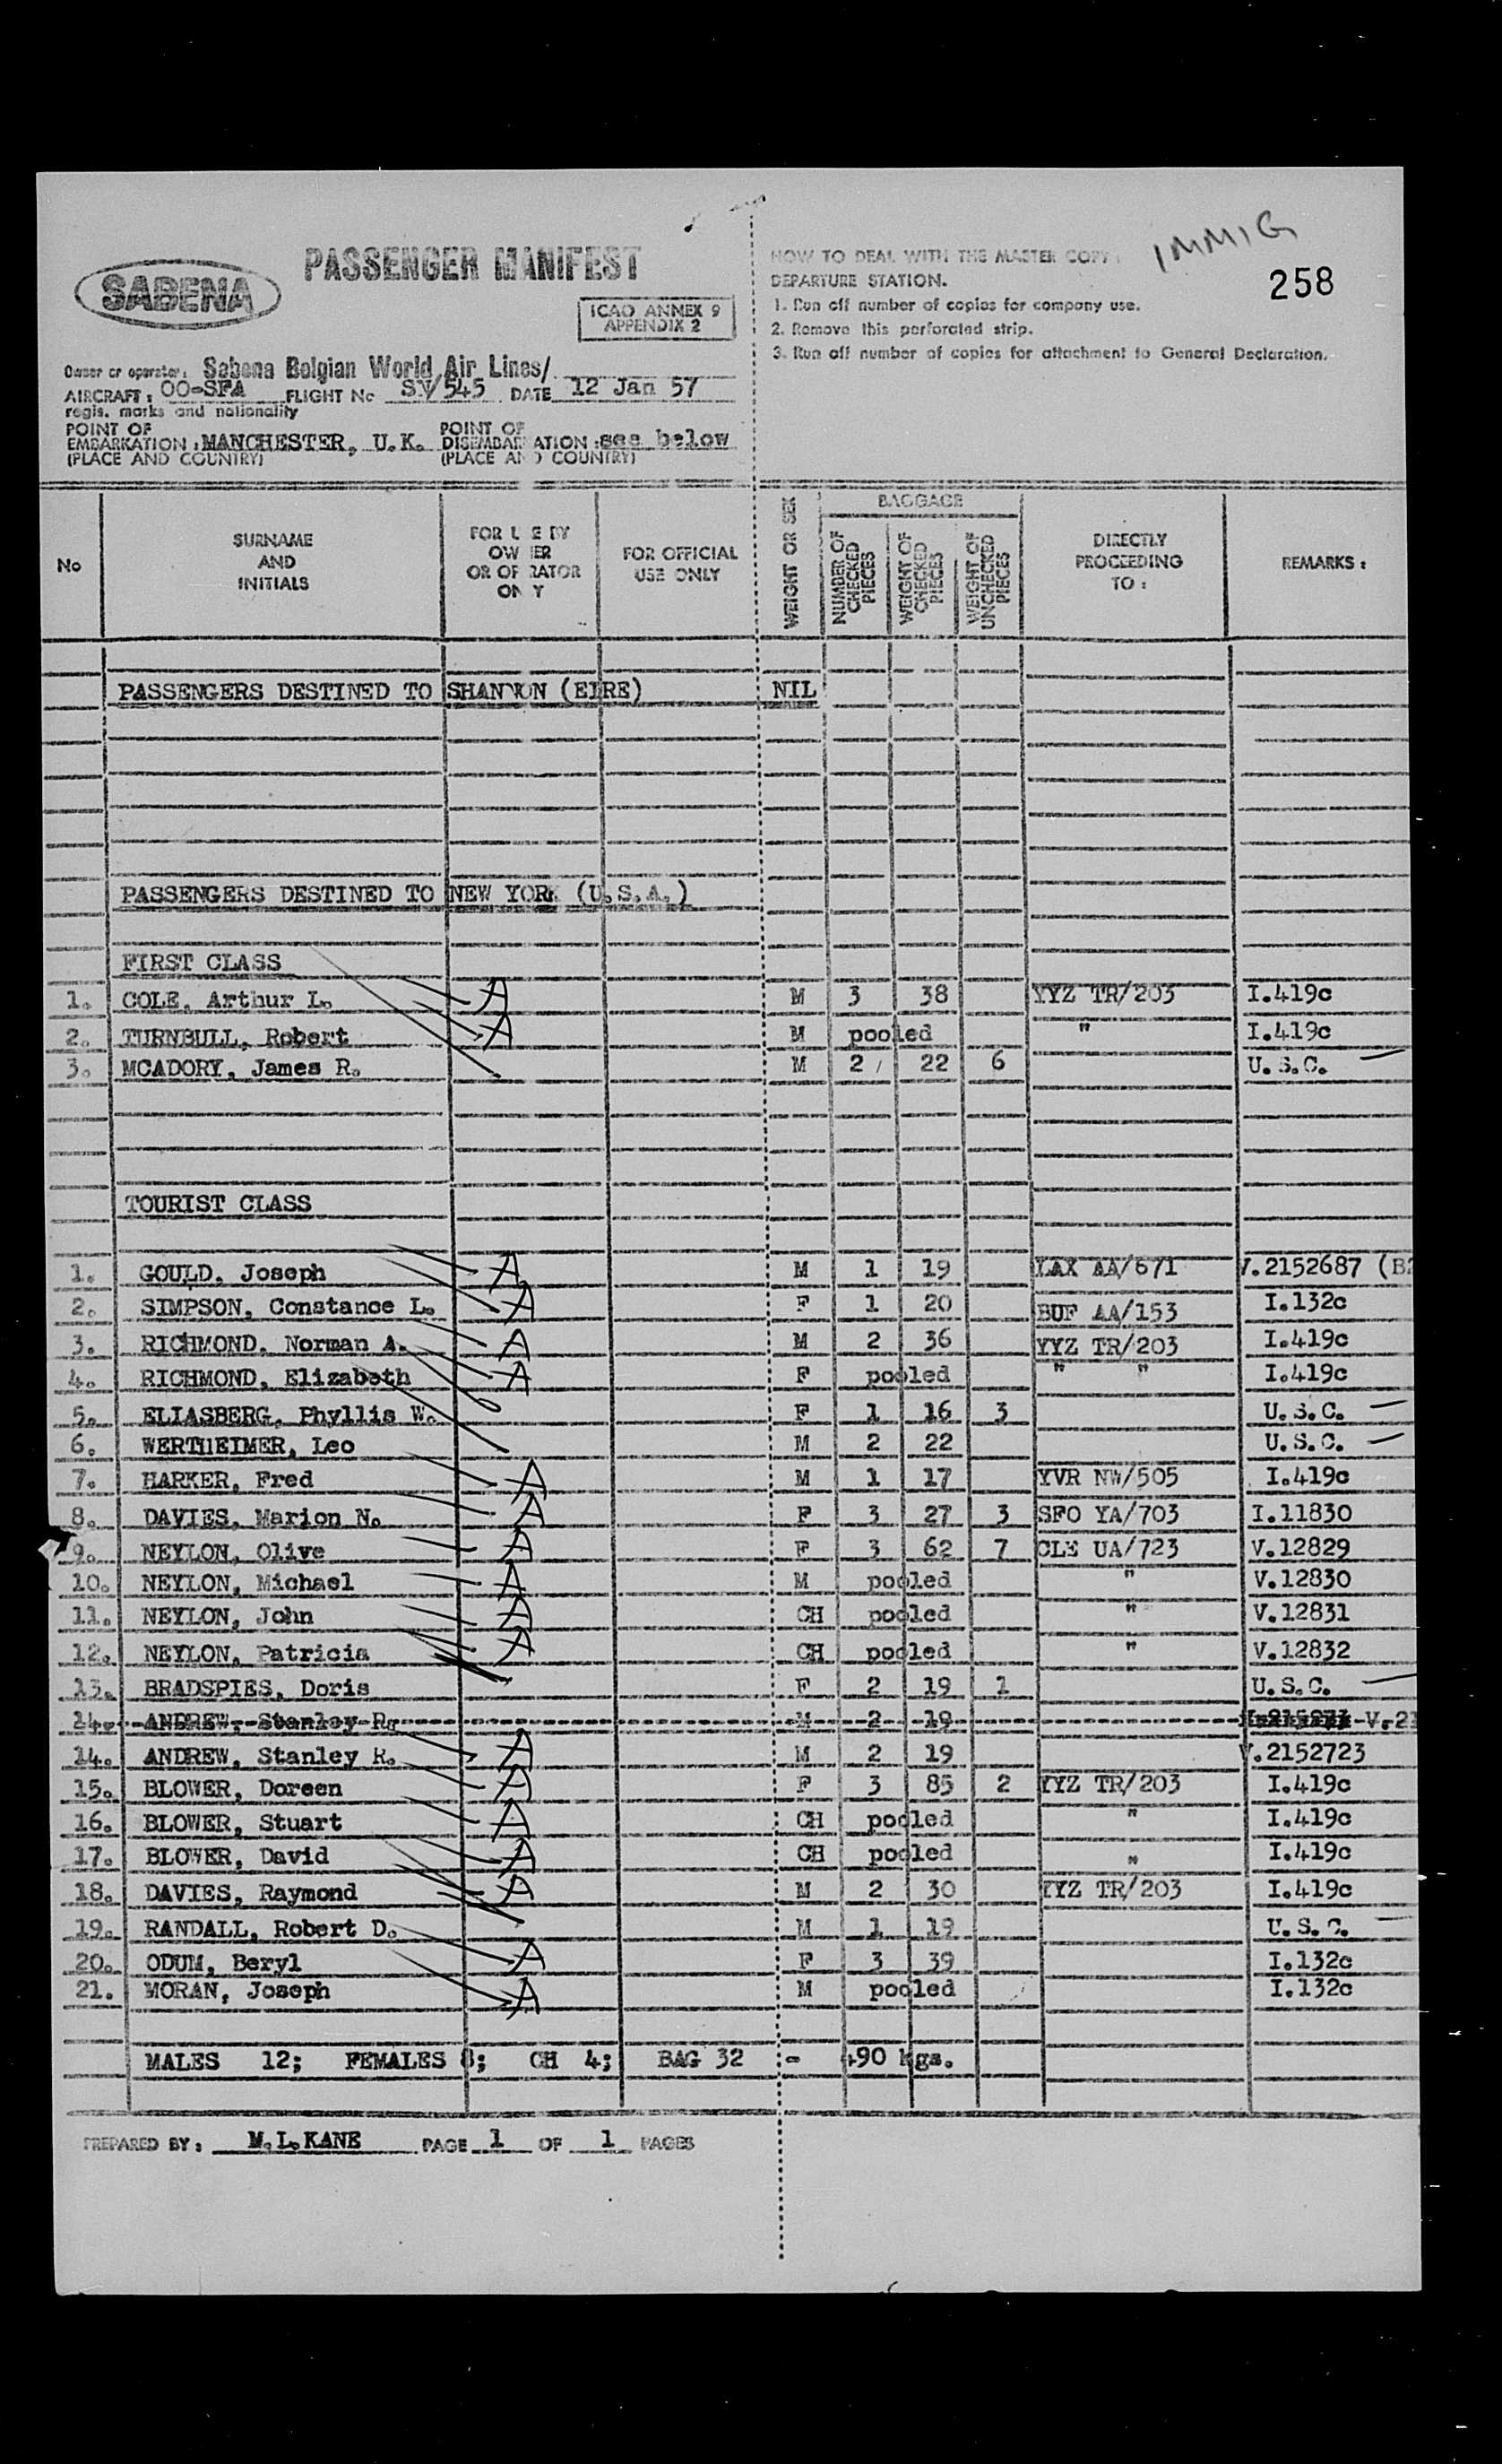 IMMIG
258
SABENA
PASSENGER MANIFEST
ICAO ANNEX 9
APPENDIX 2
HOW TO DEAL WITH THE MASTER COPY :
DEPARTURE STATION.
1. Run off number of copies for company use.
2. Remove this perforated strip.
3. Run off number of copies for attachment to General Declaration.
Owner or operator: Sabena Belgian World Air Lines/
AIRCRAFT : OO-SFA FLIGHT No SN/545 DATE 12 Jan 57
regis. marks and nationality
POINT OF EMBARKATION : MANCHESTER, U.K. POINT OF DISEMBARKATION : see below
(PLACE AND COUNTRY) (PLACE AND COUNTRY)
No
SURNAME AND INITIALS
FOR USE BY OWNER OR OPERATOR ONLY
FOR OFFICIAL USE ONLY
WEIGHT OR SEX
BAGGAGE
NUMBER OF CHECKED PIECES
WEIGHT OF CHECKED PIECES
WEIGHT OF UNCHECKED PIECES
DIRECTLY PROCEEDING TO :
REMARKS :
PASSENGERS DESTINED TO SHANNON (EIRE) NIL
PASSENGERS DESTINED TO NEW YORK (U.S.A.)
FIRST CLASS
1. COLE, Arthur L. A M 3 38 YYZ TR/203 I.419c
2. TURNBULL, Robert A M pooled " I.419c
3. MCADORY, James R. M 2 / 22 6 U.S.C. —
TOURIST CLASS
1. GOULD, Joseph A M 1 19 LAX AA/671 V.2152687
2. SIMPSON, Constance L. A F 1 20 BUF AA/153 I.132c
3. RICHMOND, Norman A. A M 2 36 YYZ TR/203 I.419c
4. RICHMOND, Elizabeth A F pooled " " I.419c
5. ELIASBERG, Phyllis W. F 1 16 3 U.S.C. —
6. WERTHEIMER, Leo M 2 22 U.S.C. —
7. HARKER, Fred A M 1 17 YVR NW/505 I.419c
8. DAVIES, Marion N. A F 3 27 3 SFO YA/703 I.11830
9. NEYLON, Olive A F 3 62 7 CLE UA/723 V.12829
10. NEYLON, Michael A M pooled " V.12830
11. NEYLON, John A CH pooled " V.12831
12. NEYLON, Patricia A CH pooled " V.12832
13. BRADSPIES, Doris F 2 19 1 U.S.C. —
14. ANDREW, Stanley R. M 2 19
14. ANDREW, Stanley R. A M 2 19 V.2152723
15. BLOWER, Doreen A F 3 85 2 YYZ TR/203 I.419c
16. BLOWER, Stuart A CH pooled " I.419c
17. BLOWER, David A CH pooled " I.419c
18. DAVIES, Raymond A M 2 30 YYZ TR/203 I.419c
19. RANDALL, Robert D. M 1 19 U.S.C. —
20. ODUM, Beryl A F 3 39 I.132c
21. MORAN, Joseph A M pooled I.132c
MALES 12; FEMALES 8; CH 4; BAG 32 - 490 kgs.
PREPARED BY : M.L.KANE PAGE 1 OF 1 PAGES